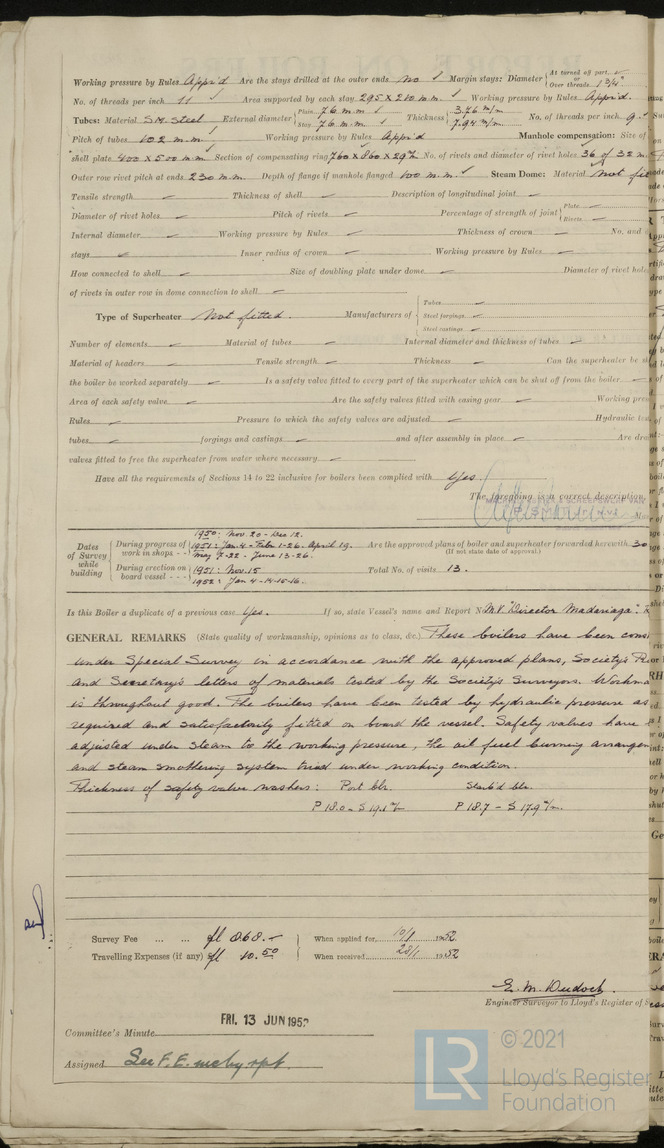 Working pressure by Rules Appr'd Are the stays drilled at the outer ends No Margin stays: Diameter At turned off part, or Over threads 1 3/4"
No. of threads per inch 11 Area supported by each stay 295 x 210 m.m. Working pressure by Rules Appr'd.
Tubes: Material S.M. Steel External diameter Plain 76 m.m Stay 76 m.m. Thickness 3.76 m/m 7.94 m/m No. of threads per inch 9
Pitch of tubes 102 m.m Working pressure by Rules Appr'd Manhole compensation: Size of
shell plate 400 x 500 m.m. Section of compensating ring 760 x 860 x 29 No. of rivets and diameter of rivet holes 36 of 32 m.
Outer row rivet pitch at ends 230 m.m. Depth of flange if manhole flanged 100 m.m. Steam Dome: Material Not
Tensile strength Thickness of shell Description of longitudinal joint
Diameter of rivet holes Pitch of rivets Percentage of strength of joint Plate Rivets
Internal diameter Working pressure by Rules Thickness of crown No. and
stays Inner radius of crown Working pressure by Rules
How connected to shell Size of doubling plate under dome Diameter of rivet hole
of rivets in outer row in dome connection to shell
Type of Superheater Not fitted. Manufacturers of Tubes Steel forgings Steel castings
Number of elements Material of tubes Internal diameter and thickness of tubes
Material of headers Tensile strength Thickness Can the superheater be
the boiler be worked separately Is a safety valve fitted to every part of the superheater which can be shut off from the boiler
Area of each safety valve Are the safety valves fitted with easing gear Working
Rules Pressure to which the safety valves are adjusted Hydraulic
tubes forgings and castings and after assembly in place Are
valves fitted to free the superheater from water where necessary
Have all the requirements of Sections 14 to 22 inclusive for boilers been complied with Yes
The foregoing is a correct description,
Dates of Survey while building During progress of work in shops - - 1950: Nov. 20 - Dec 12. 1951: Jan 4 - Febr. 1-26 - April 19. May 7-22 - June 13-26. Are the approved plans of boiler and superheater forwarded herewith 30
(If not state date of approval.)
During erection on board vessel - - - 1951: Nov. 15 1952: Jan 4-14-15-16. Total No. of visits 13.
Is this Boiler a duplicate of a previous case Yes. If so, state Vessel's name and Report No. M.V. "Director Madariaga".
GENERAL REMARKS (State quality of workmanship, opinions as to class, &c.) These boilers have been
under Special Survey in accordance with the approved plans, Society's
and Secretary's letters of materials tested by the Society's Surveyors.
is throughout good. The boilers have been tested by hydraulic pressure as
required and satisfactorily fitted on board the vessel. Safety valves have
adjusted under steam to the working pressure, the oil fuel burning
and steam smothering system tried under working condition.
Thickness of safety valve washers: Port blr. Starb'd blr.
P 18.0 - S 19.1 P 18.7 - S 17.9
Survey Fee ... ... fl 868.- When applied for, 10/1 1952
Travelling Expenses (if any) fl 10.50 When received, 28/1 1952
Engineer Surveyor to Lloyd's Register of
Committee's Minute FRI. 13 JUN 1952
Assigned See F.E. mchy rpt.
LR © 2021
Lloyd's Register
Foundation